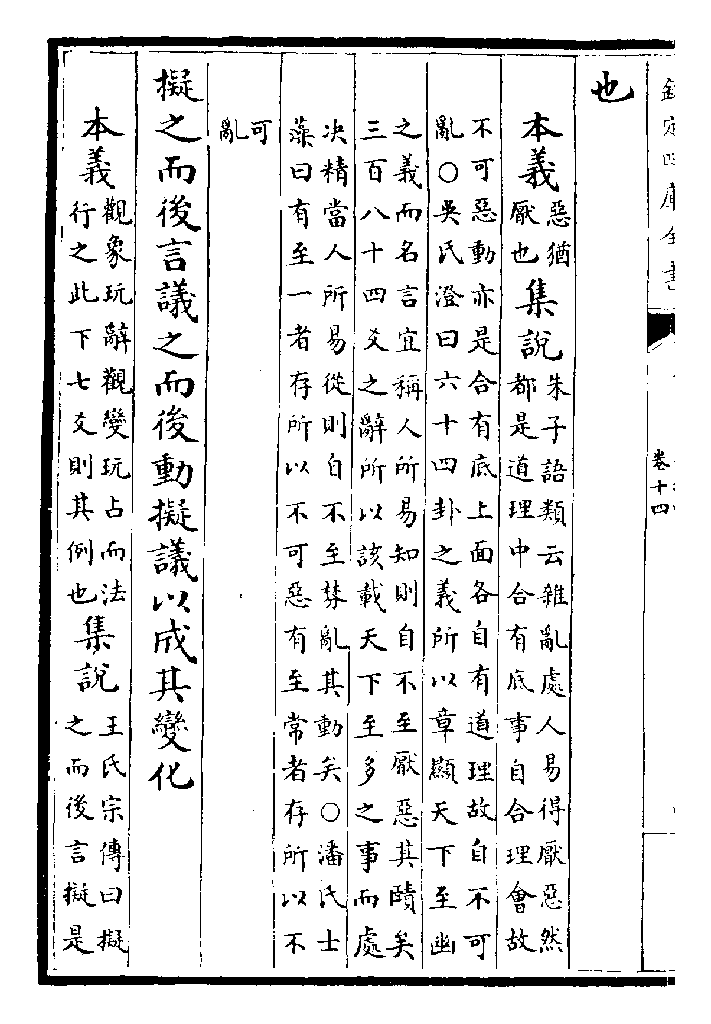 欽定四庫全書
卷十四
也
本義
惡猶
厭也
集說
朱子語類云雜亂處人易得厭惡然
都是道理中合有底事自合理會故
不可惡動亦是合有底上面各自有道理故自不可
亂○吳氏澄曰六十四卦之義所以章顯天下至幽
之義而名言宜稱人所易知則自不至厭惡其賾矣
三百八十四爻之辭所以該載天下至多之事而處
决精當人所易從則自不至棼亂其動矣○潘氏士
藻曰有至一者存所以不可惡有至常者存所以不
可
亂
擬之而後言議之而後動擬議以成其變化
本義
觀象玩辭觀變玩占而法
行之此下七爻則其例也
集說
王氏宗傳曰擬
之而後言擬是